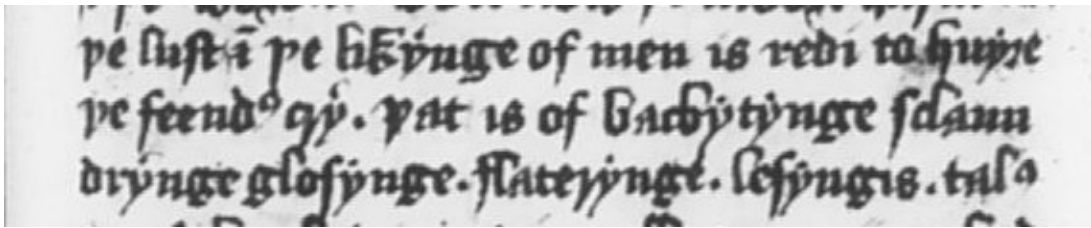 þe lust ī þe likẏnge of men is redi to huẏre
þe feendꝰ crẏ . þat is of bacbẏtẏnge sclaun
drẏnge glosẏnge . flaterẏnge . lesẏngis . talꝰ